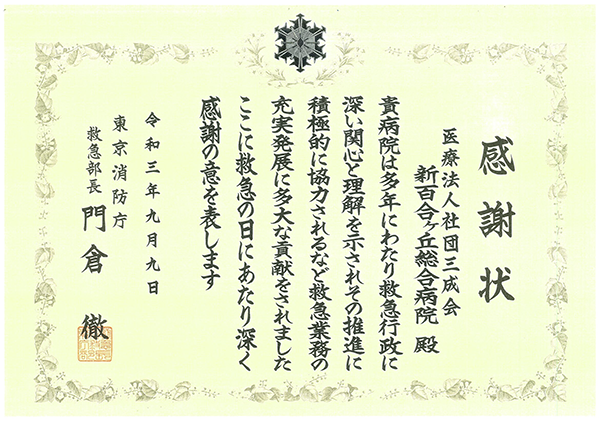 感謝状
医療法人社団三成会
新百合ヶ丘総合病院 殿
貴病院は多年にわたり救急行政に
深い関心と理解を示されその推進に
積極的に協力されるなど救急業務の
充実発展に多大な貢献をされました
ここに救急の日にあたり深く
感謝の意を表します
令和三年九月九日
東京消防庁
救急部長 門倉 徹